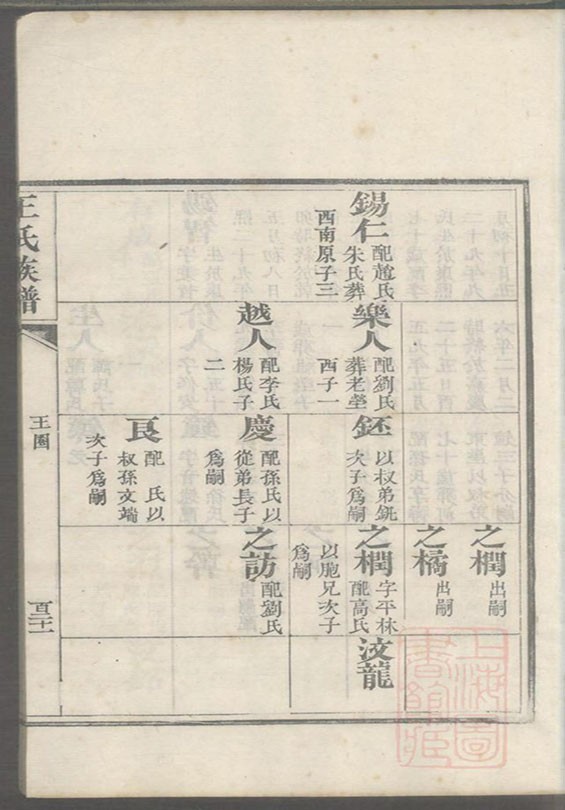 錫仁 配趙氏
朱氏葬
西南原子三
樂人 配劉氏
葬老塋
西子一
越人 配李氏
楊氏子
二
鉟 以叔弟銑
次子爲嗣
慶 配孫氏以
從弟長子
爲嗣
良 配 氏以
叔孫文端
次子爲嗣
之榈 出嗣
之橘 出嗣
之榈 字平林
配高氏
以胞兄次子
爲嗣
之訪 配劉氏
汶龍
王氏族譜
王圈
上海圖
書館藏